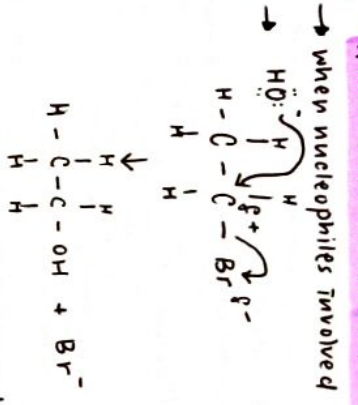 → when nucleophiles involved
→ HÖ:⁻
H H
| | δ+
H - C - C - Br δ-
| |
H H
↓
H H
| |
H - C - C - OH + Br⁻
| |
H H